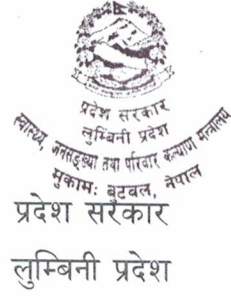 प्रदेश सरकार
लुम्बिनी प्रदेश
स्वास्थ्य, जनसङ्ख्या तथा परिवार कल्याण मन्त्रालय
मुकामः बुटवल, नेपाल
प्रदेश सरकार
लुम्बिनी प्रदेश